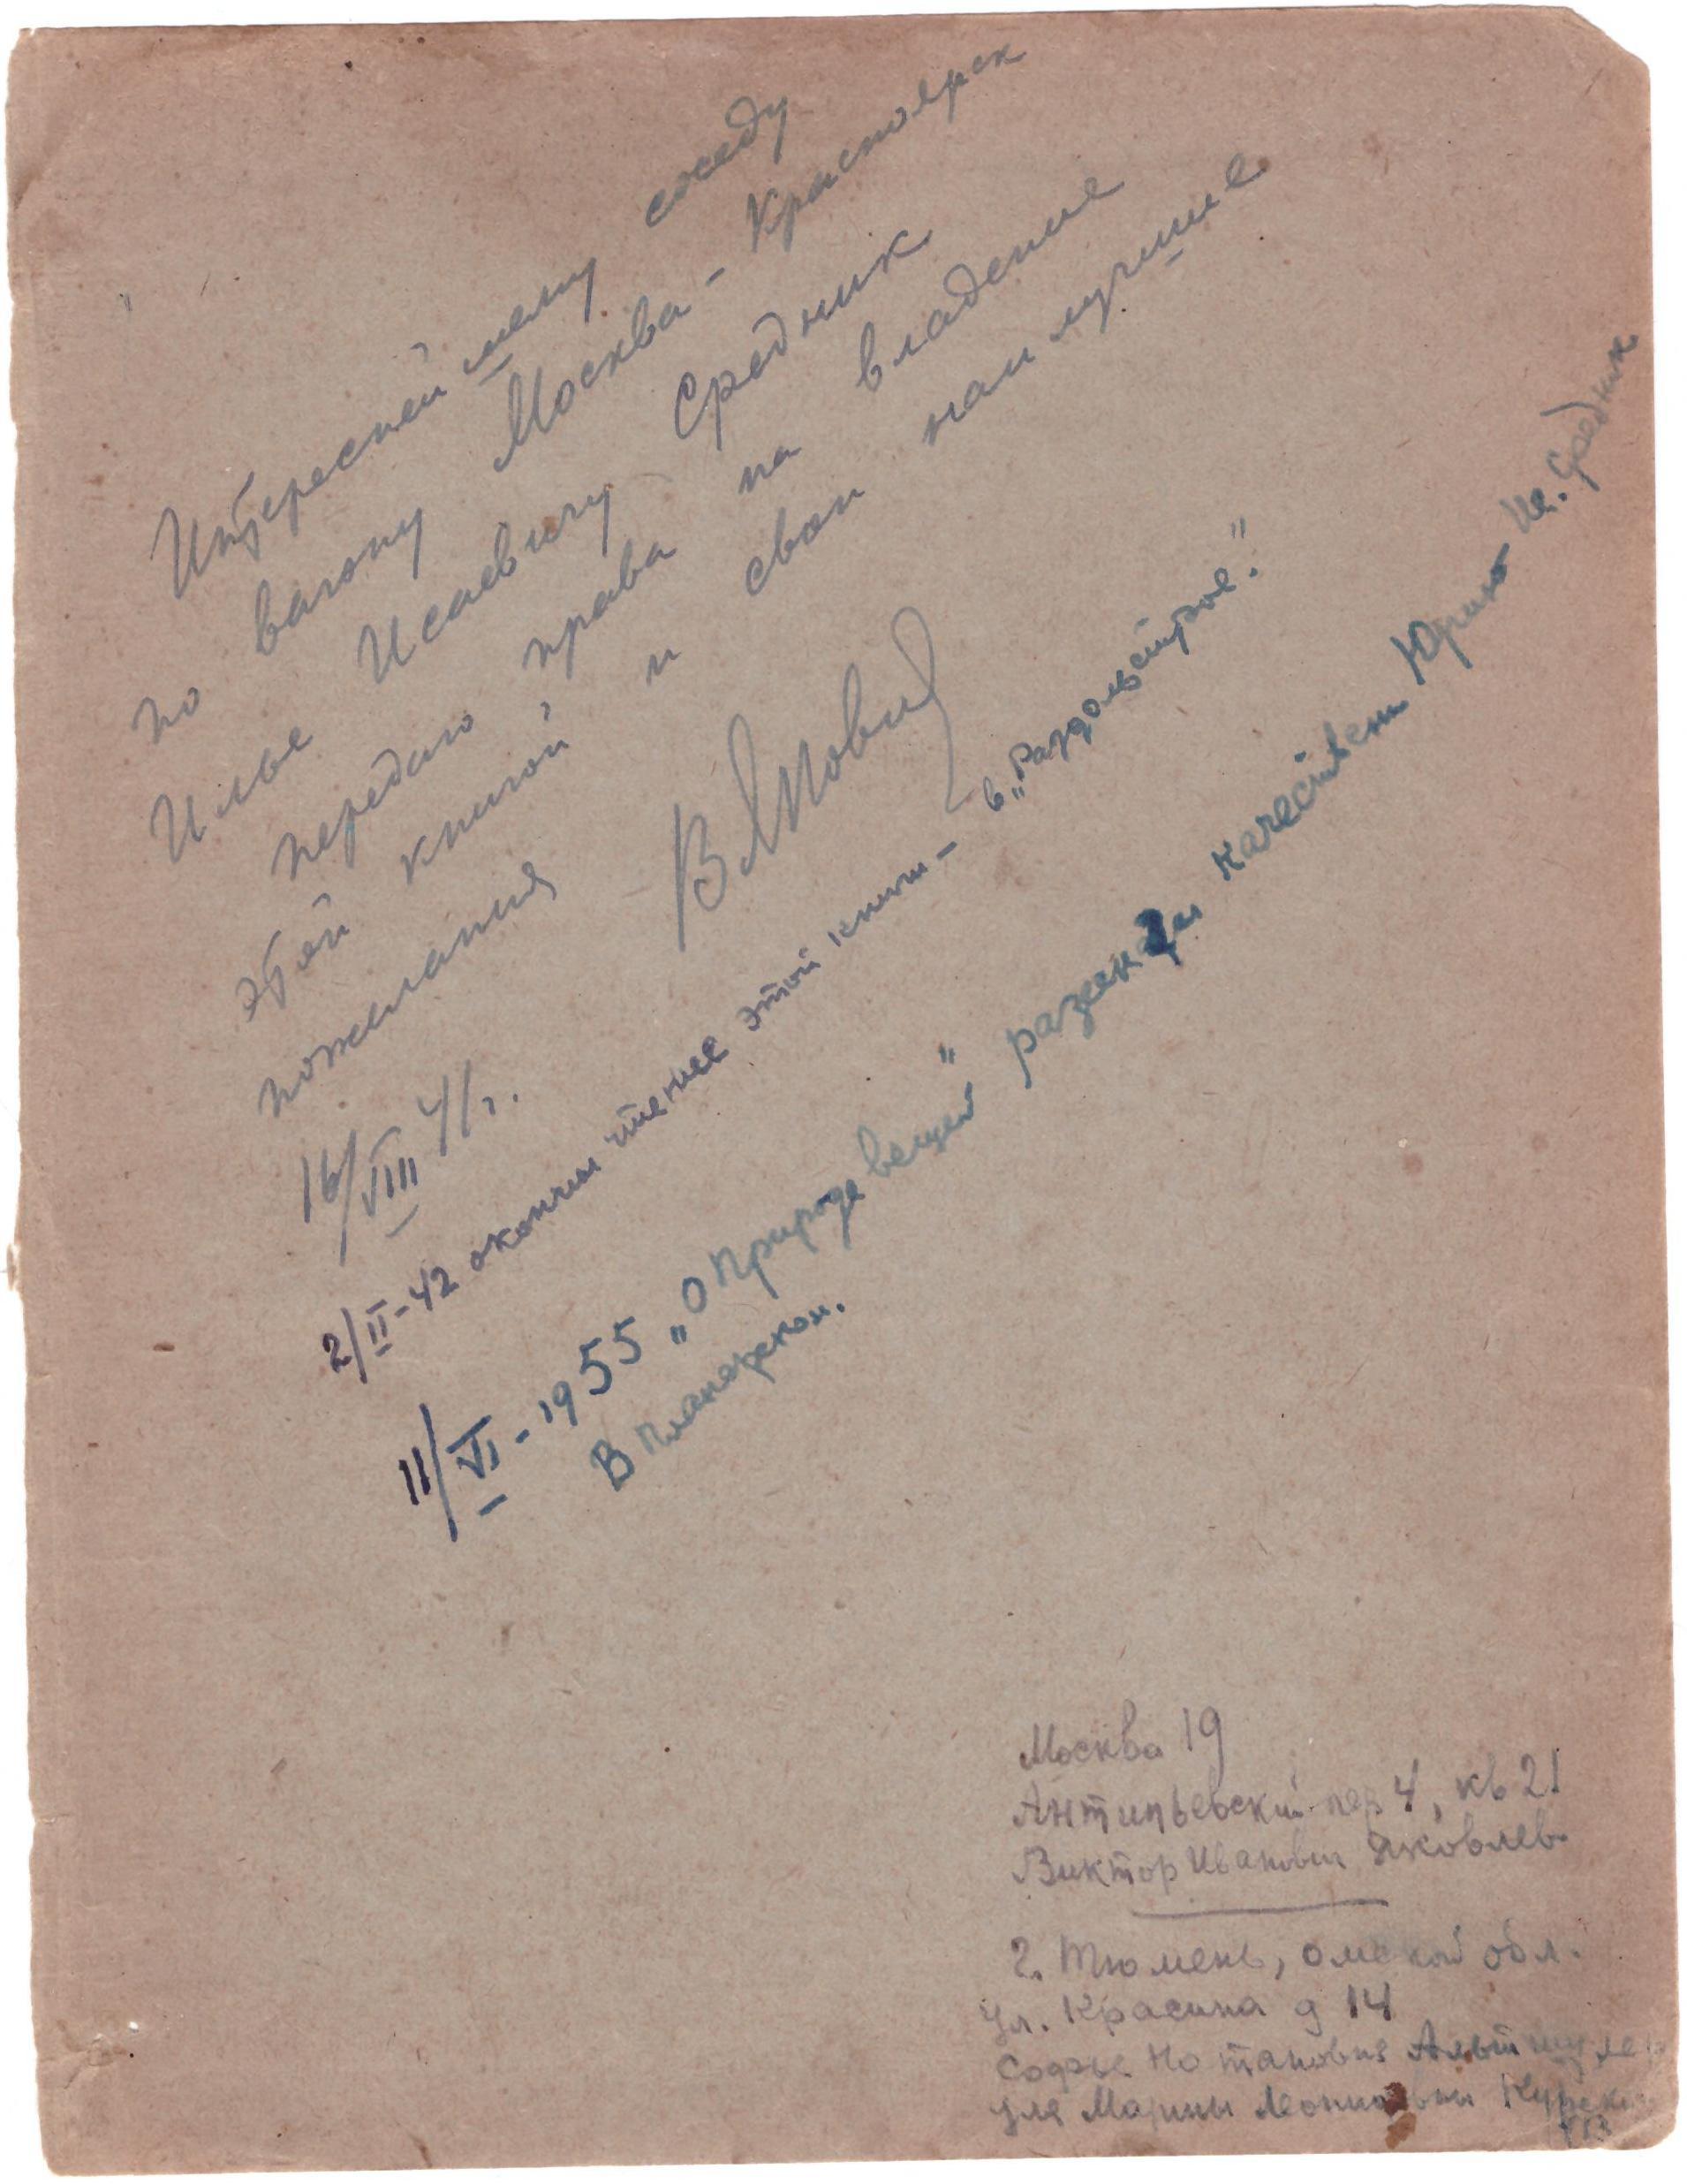 Интереснейшему соседу
по вагону Москва - Красноярск
Илье Исаевичу Средник
передаю права на владение
этой книгой и свои наилучшие
пожелания
16/VIII 41г.
2/II-42 окончил чтение этой книги - в „Раздольстрое".
11/VI-1955 „О природе вещей" рассказал качествен Юрию Ил. Средник
В Планерском.
Москва 19
Антипьевский пер 4, кв 21
Виктор Иванович Яковлев
г. Тюмень, Омской обл.
ул. Красина д 14
Софье Альтшулер
для Марины Леонидовны